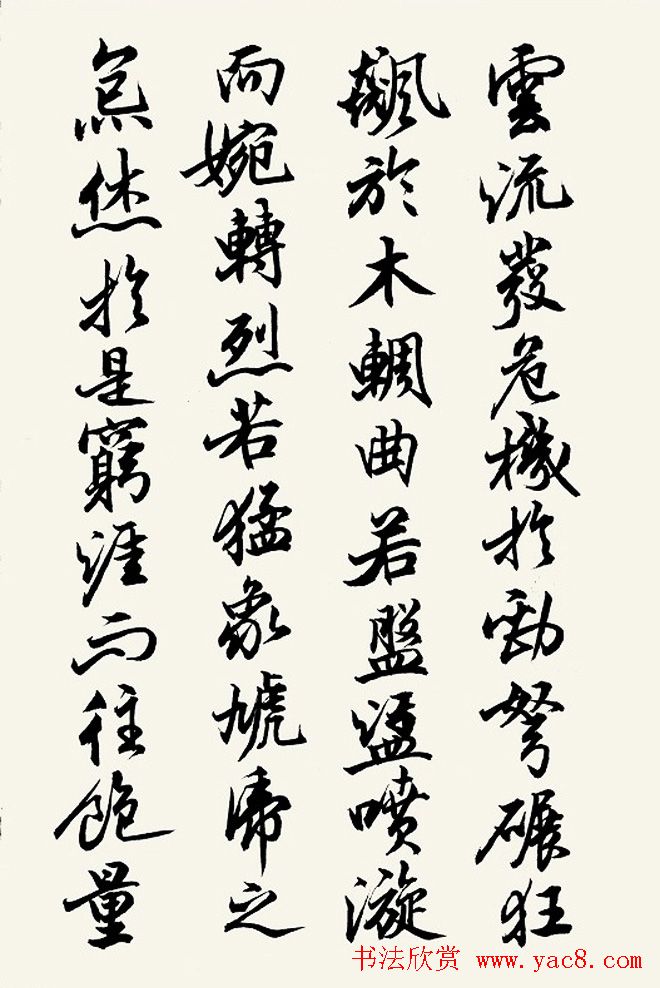 雲流發危機於勁弩碾狂
飆於木輞曲若盤盪噴漩
而婉轉烈若猛象虓之
炰烋於是窮涯而往飽量
书法欣赏 www.yac8.com